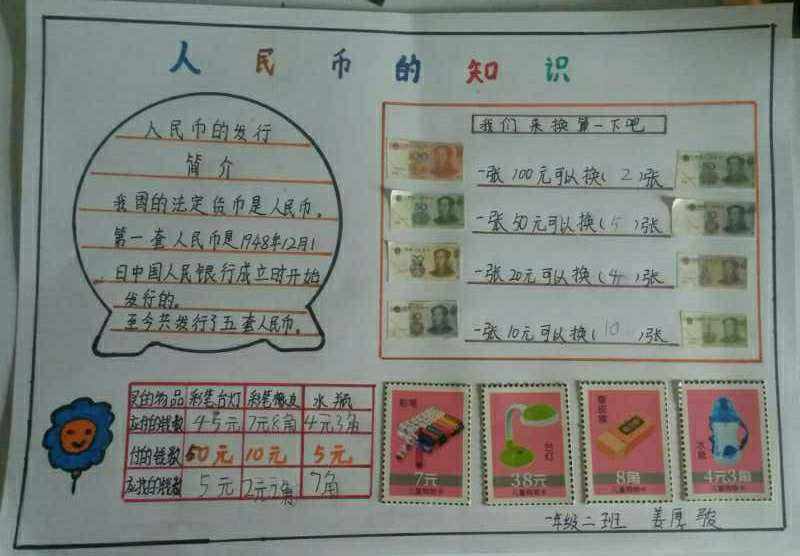 人民币的知识
人民币的发行
简介
我国的法定货币是人民币。
第一套人民币是1948年12月1
日中国人民银行成立时开始
发行的。
至今共发行了五套人民币。
我们来换算一下吧
一张100元可以换(2)张
一张50元可以换(5)张
一张20元可以换(4)张
一张10元可以换(10)张
买的物品 彩笔台灯 彩笔橡皮 水瓶
应付的钱数 45元 7元8角 4元3角
付的钱数 50元 10元 5元
应找的钱数 5元 2元2角 7角
彩笔
7元
儿童购物卡
台灯
38元
儿童购物卡
橡皮擦
8角
儿童购物卡
水瓶
4元3角
儿童购物卡
一年级二班 姜厚